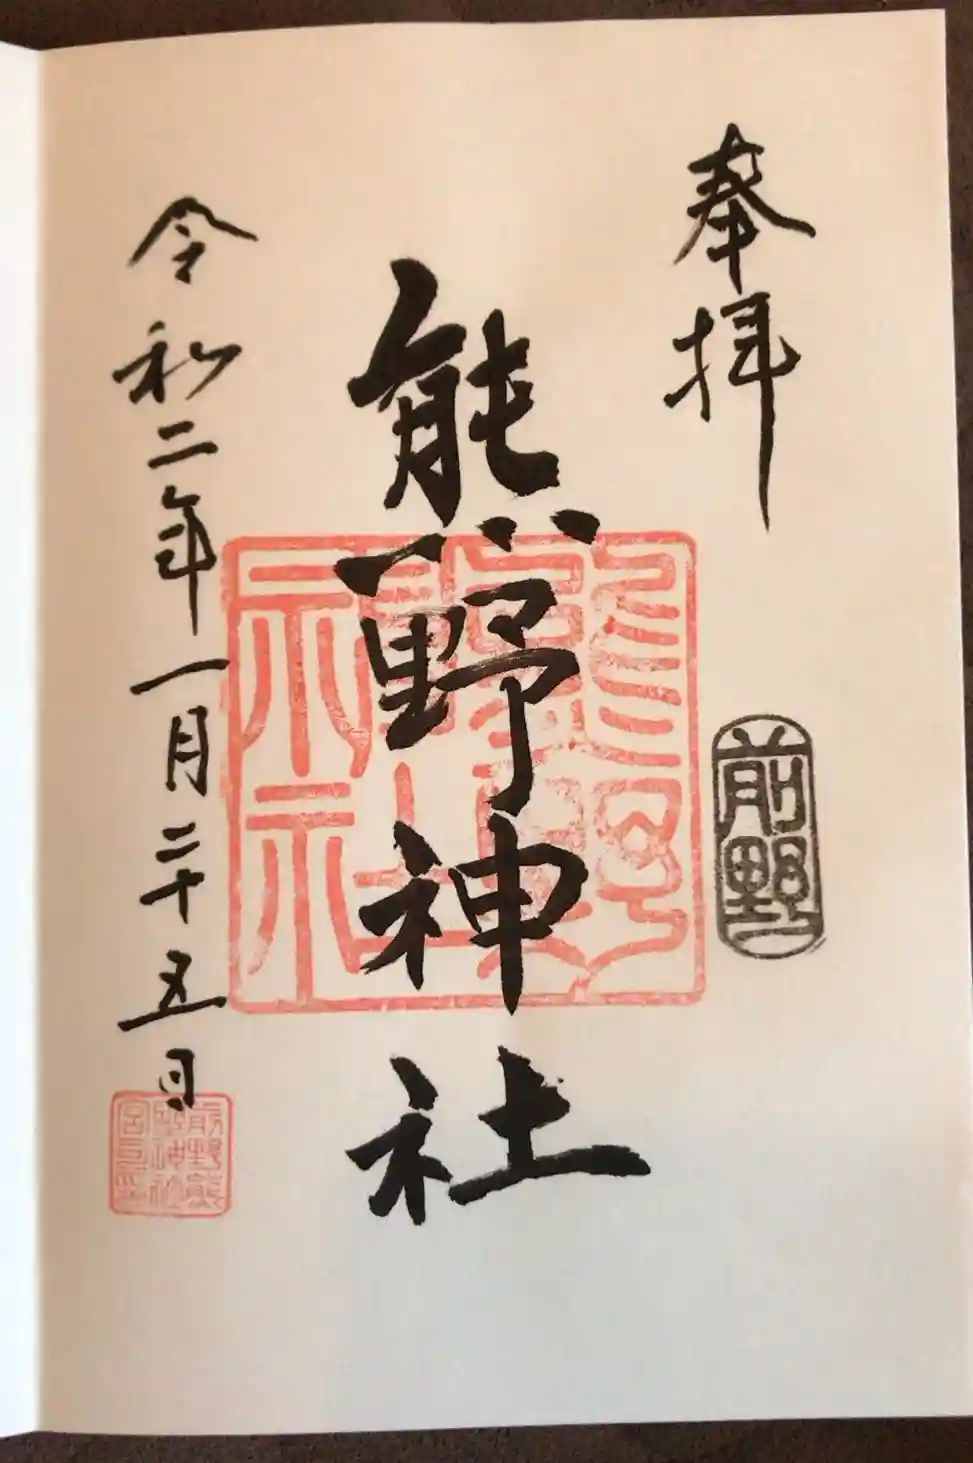 奉拝
前野
熊野神社
令和二年一月二十五日
前野熊
野神社
宮司印